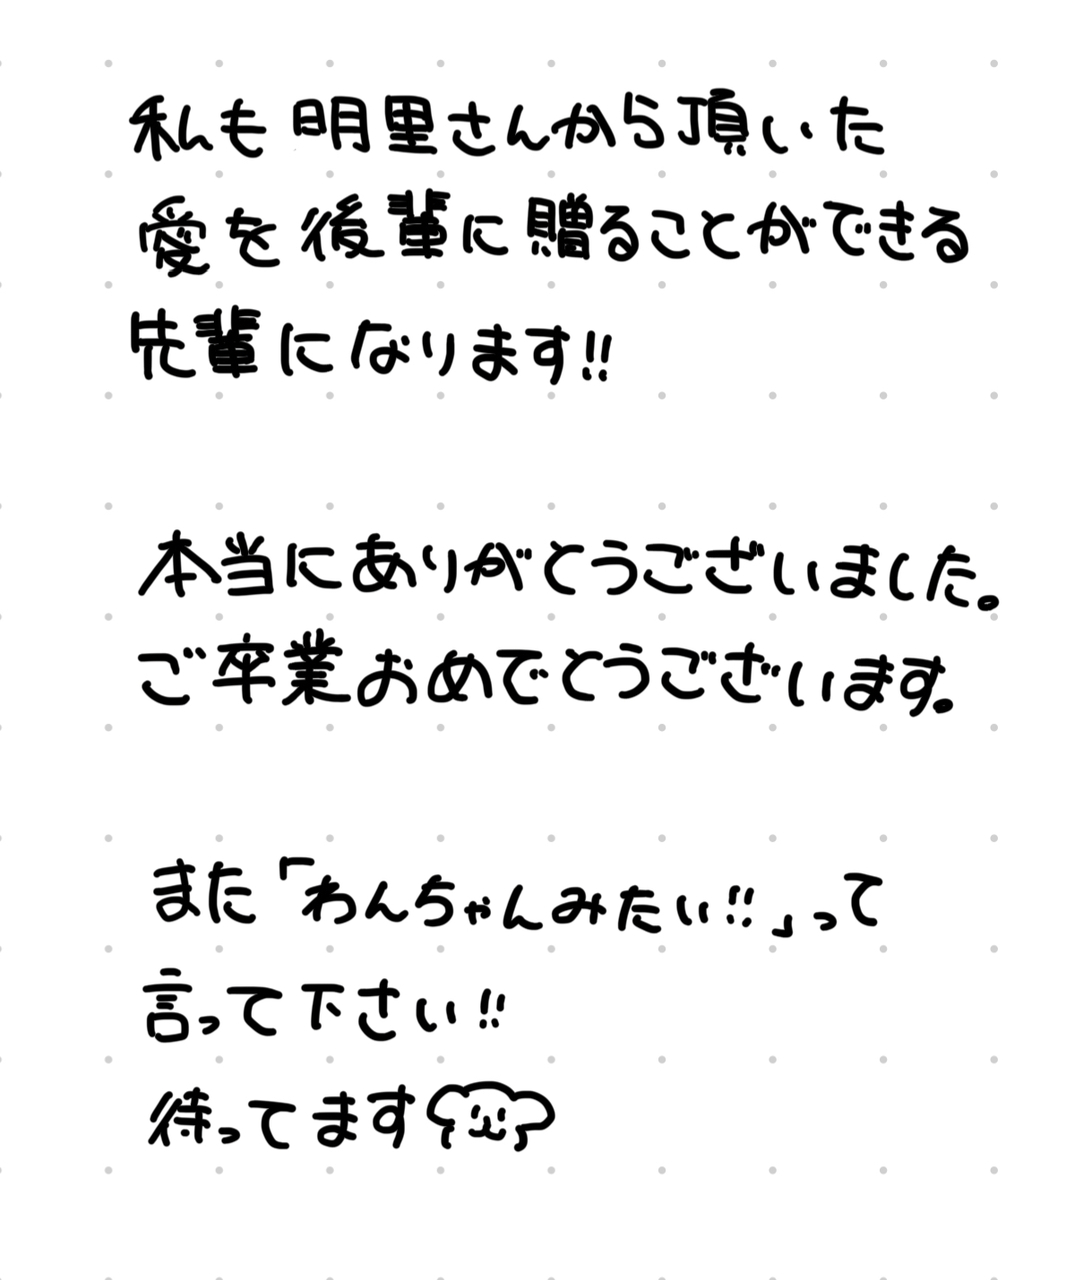 私も明里さんから頂いた
愛を後輩に贈ることができる
先輩になります!!
本当にありがとうございました。
ご卒業おめでとうございます。
また「わんちゃんみたい!!」って
言って下さい!!
待ってます